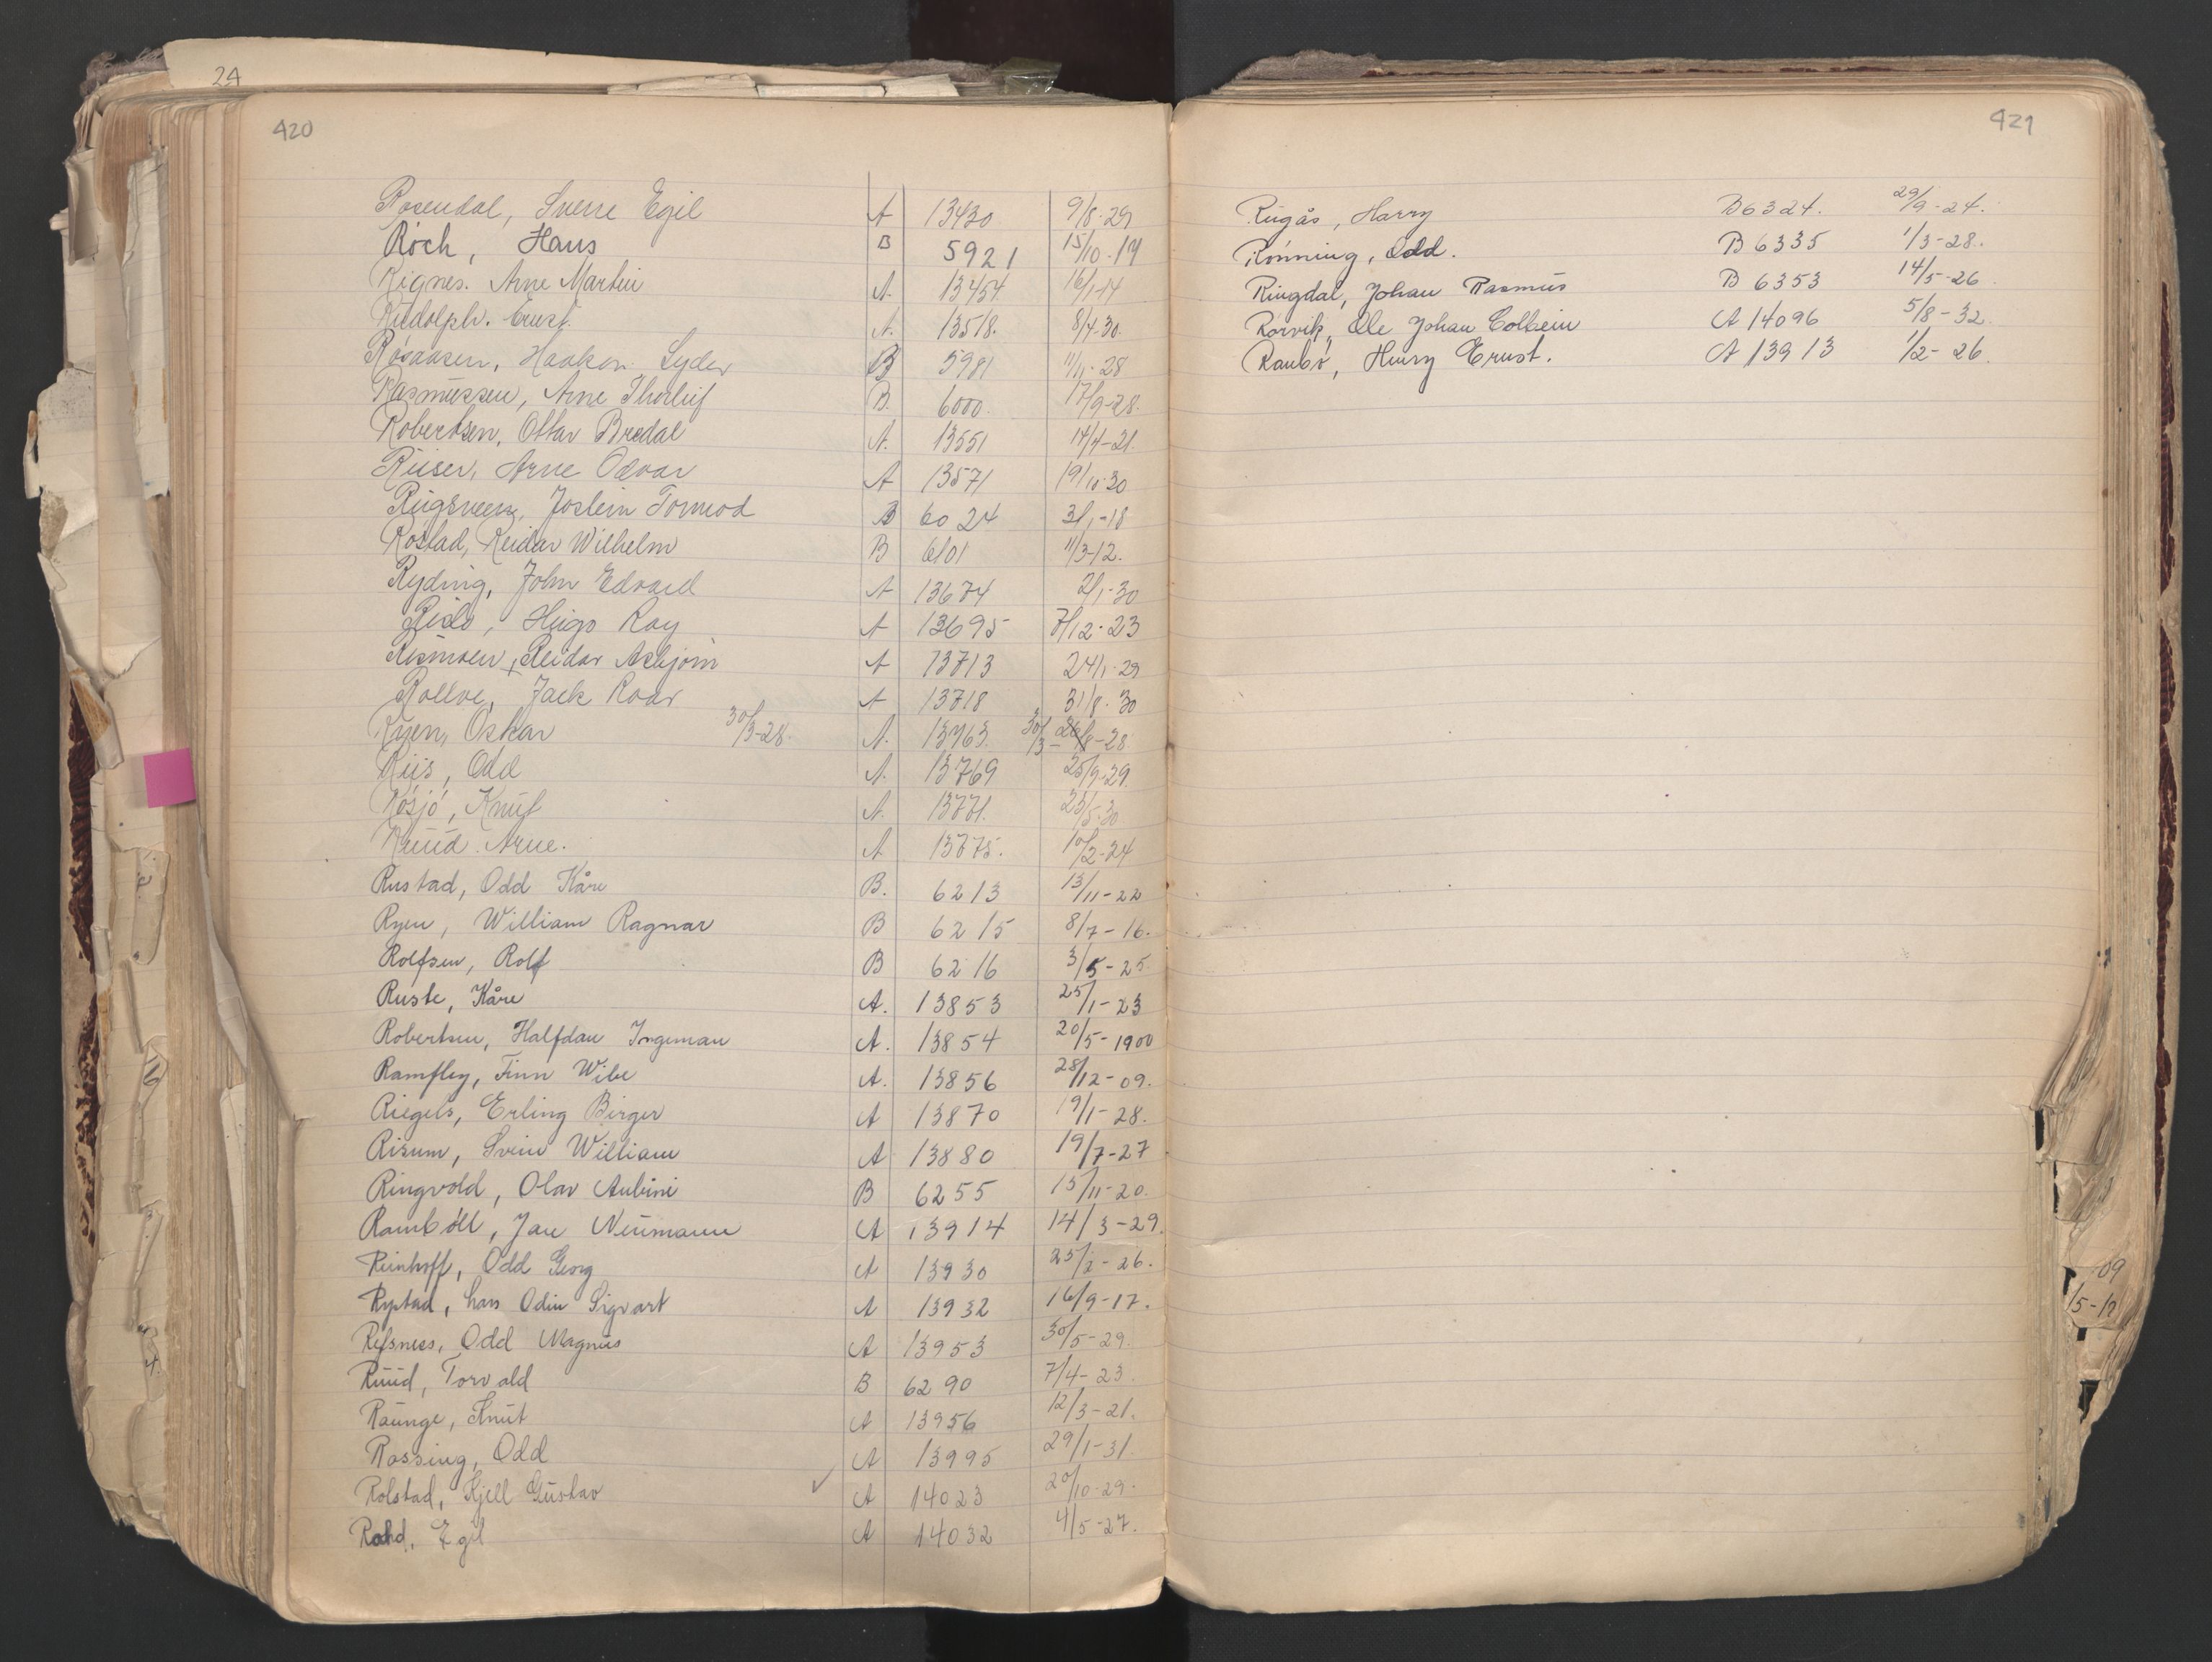 24
420
Rosendal, Sverre Egil A 13430 9/8-29
Röch, Hans B 5921 15/10-14
Rignes. Arne Martin A. 13454 16/1-14
Rudolph. Ernst. A. 13518. 8/4-30.
Haakon Lyder B 5981 11/11-28
Rasmussen, Arne Thorleif B. 6000. 17/9-28.
Robertsen, Ottar Bredal A. 13551 14/4-21.
Riiser, Arne Odvar A 13571 19/10-30
Jostein Tormod B 6024 3/1-18
Rostad, Reidar Wilhelm B 6101 11/3-12.
Ryding, John Edvard A 13674 2/1-30
Hugo Roy A 13695 7/12-23
Reidar Asbjørn A 13713 24/1-29
Rollve, Jack Roar A 13718 31/8-30
Ryen, Oskar 30/3-28. A. 13763. 30/3- -28
Riis, Odd A. 13769 25/9-29.
Røsjø, Knut A. 13771. 23/5-30
Ruud. Arne. A 13775. 10/2-24
Rustad, Odd Kåre B. 6213 13/11-22
Ryen, William Ragnar B 6215 8/7-16.
Rolfsen, Rolf B 6216 3/5-25.
Ruste, Kåre A. 13853 25/1-23
Robertsen, Halfdan Ingeman A. 13854 20/5-1900
Ramfley, Finn Wibe A. 13856 28/12-09.
Riegels, Erling Birger A 13870 19/1-28.
Risum, Svein William A 13880 19/7-27
Ringvold, Olav Aubini B 6255 15/11-20.
Ramböll, Jan Neumann A 13914 14/3-29.
Reinhoff, Odd Georg A 13930 25/2-26.
Rystad, Lars Odin Sigvart A 13932 16/9-17.
Refsness, Odd Magnus A 13953 30/5-29.
Ruud, Torvald B 6290 7/4-23.
Raunge, Knut A 13956 12/3-21.
Rossing, Odd A 13995 29/1-31
Rolstad, Kjell Gustav ✓ A 14023 20/10-29.
Egil A 14032 4/5-27.
421
Rugås, Harry B 6324. 29/9-24.
Rønning, Odd. B 6335 1/3-28.
Ringdal, Johan Rasmus B 6353 14/5-26
Rörvik, Ole Johan Colbein A 14096 5/8-32.
Raubö, Henry Ernst. A 13913 1/2-26.
09
/5-12